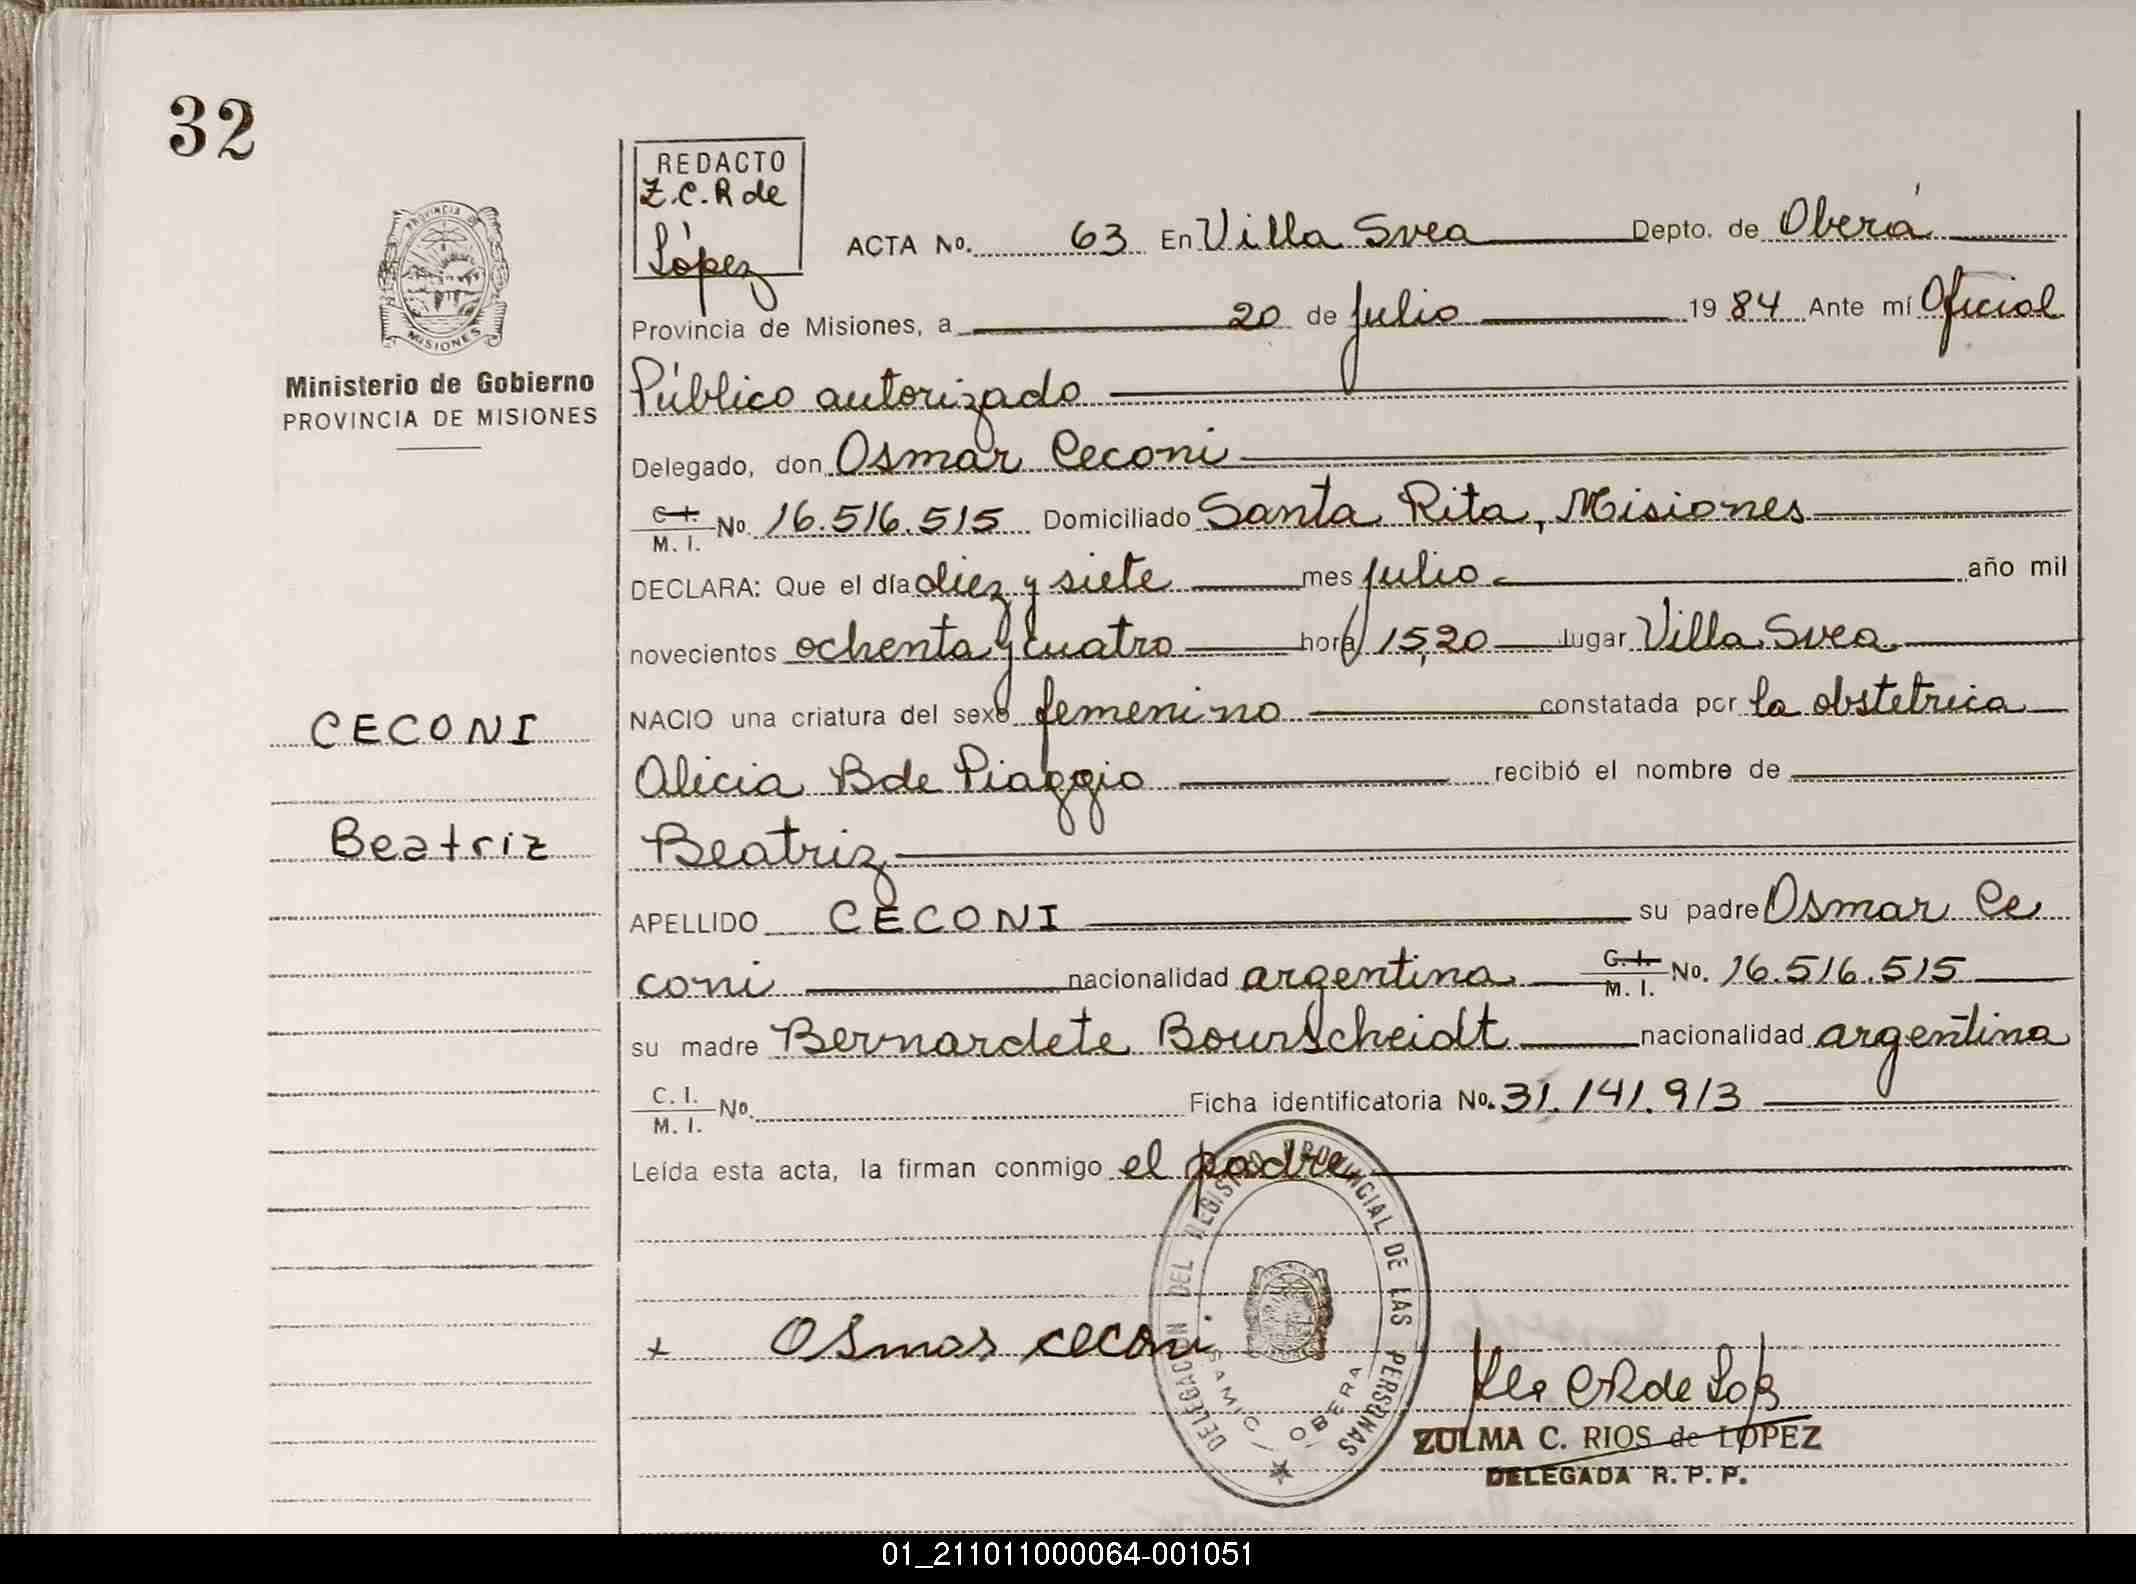 32
REDACTO
Z.C.R de
López
ACTA No. 63 En Villa Svea Depto. de Oberá
Provincia de Misiones, a 20 de julio 1984 Ante mí Oficial
Público autorizado
Delegado, don Osmar Ceconi
C.I. / M.I. No. 16.516.515 Domiciliado Santa Rita, Misiones
DECLARA: Que el día diez y siete mes julio año mil
novecientos ochenta y cuatro hora 15,20 lugar Villa Svea
NACIO una criatura del sexo femenino constatada por la obstetrica
Alicia B de Piaggio recibió el nombre de
Beatriz
APELLIDO CECONI su padre Osmar Ce
coni nacionalidad argentina C.I. / M.I. No. 16.516.515
su madre Bernardete Bourscheidt nacionalidad argentina
C.I. / M.I. No. Ficha identificatoria No. 31.141.913
Leída esta acta, la firman conmigo el padre
PROVINCIA DE
MISIONES
Ministerio de Gobierno
PROVINCIA DE MISIONES
CECONI
Beatriz
DELEGACION DEL REGISTRO PROVINCIAL DE LAS PERSONAS
SAMIC - OBERA
+ Osmar ceconi
ZULMA C. RIOS de LOPEZ
DELEGADA R. P. P.
01_211011000064-001051